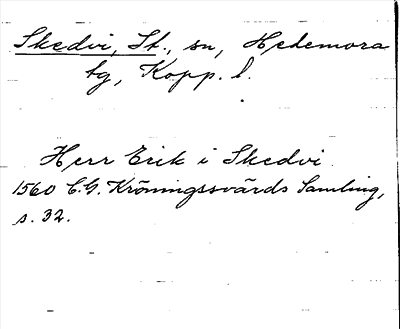 Skedvi, St., sn, Hedemora
tg, Kopp. l.
Herr Erik i Skedvi
1560 C.G. Kröningssvärds Samling,
s. 32.